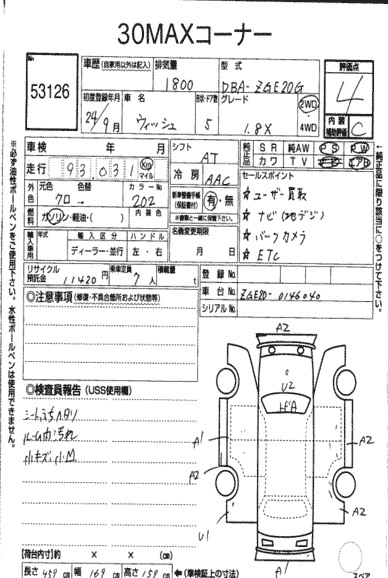 30MAXコーナー
No. 53126
車歴 (自家用以外は記入) 排気量 1800 型式 DBA-ZGE20G
初度登録年月 24年9月 車名 ウィッシュ 形状・ドア数 5 グレード 1.8X 2WD・4WD
評価点 4
内装補助評価 C
車検 年 月
シフト AT
純正品 SR 純AW PS PW
カワ TV
走行 93,031 Km マイル
冷房 AAC
外色 元色 クロ 色替 カラーNo. 202
燃料 ガソリン・軽油・( ) 内装色
新車整備手帳(保証書付) 有・無
輸入車用 年式 輸入区分 ハンドル
ディーラー・並行 左・右
名義変更期限 月 日
リサイクル預託金 11420円 乗車定員 7人 積載量 t
セールスポイント
☆ ユーザー買取
☆ ナビ(地デジ)
☆ バックカメラ
☆ ETC
登録No.
車台No. ZGE20-0146040
シリアルNo.
◎注意事項 (修復・不具合箇所および状態等)
◎検査員報告 (USS使用欄)
ルーム内汚れ
小キズ、小M
A2
U2
A1
A2
A2
A2
U1
A1
【荷台内寸】約 × × (cm)
長さ 459 cm 幅 169 cm 高さ 159 cm ←(車検証上の寸法)
※必ず油性ボールペンをご使用下さい。水性ボールペンは使用できません。
←純正品に限り該当に○をつけて下さい。